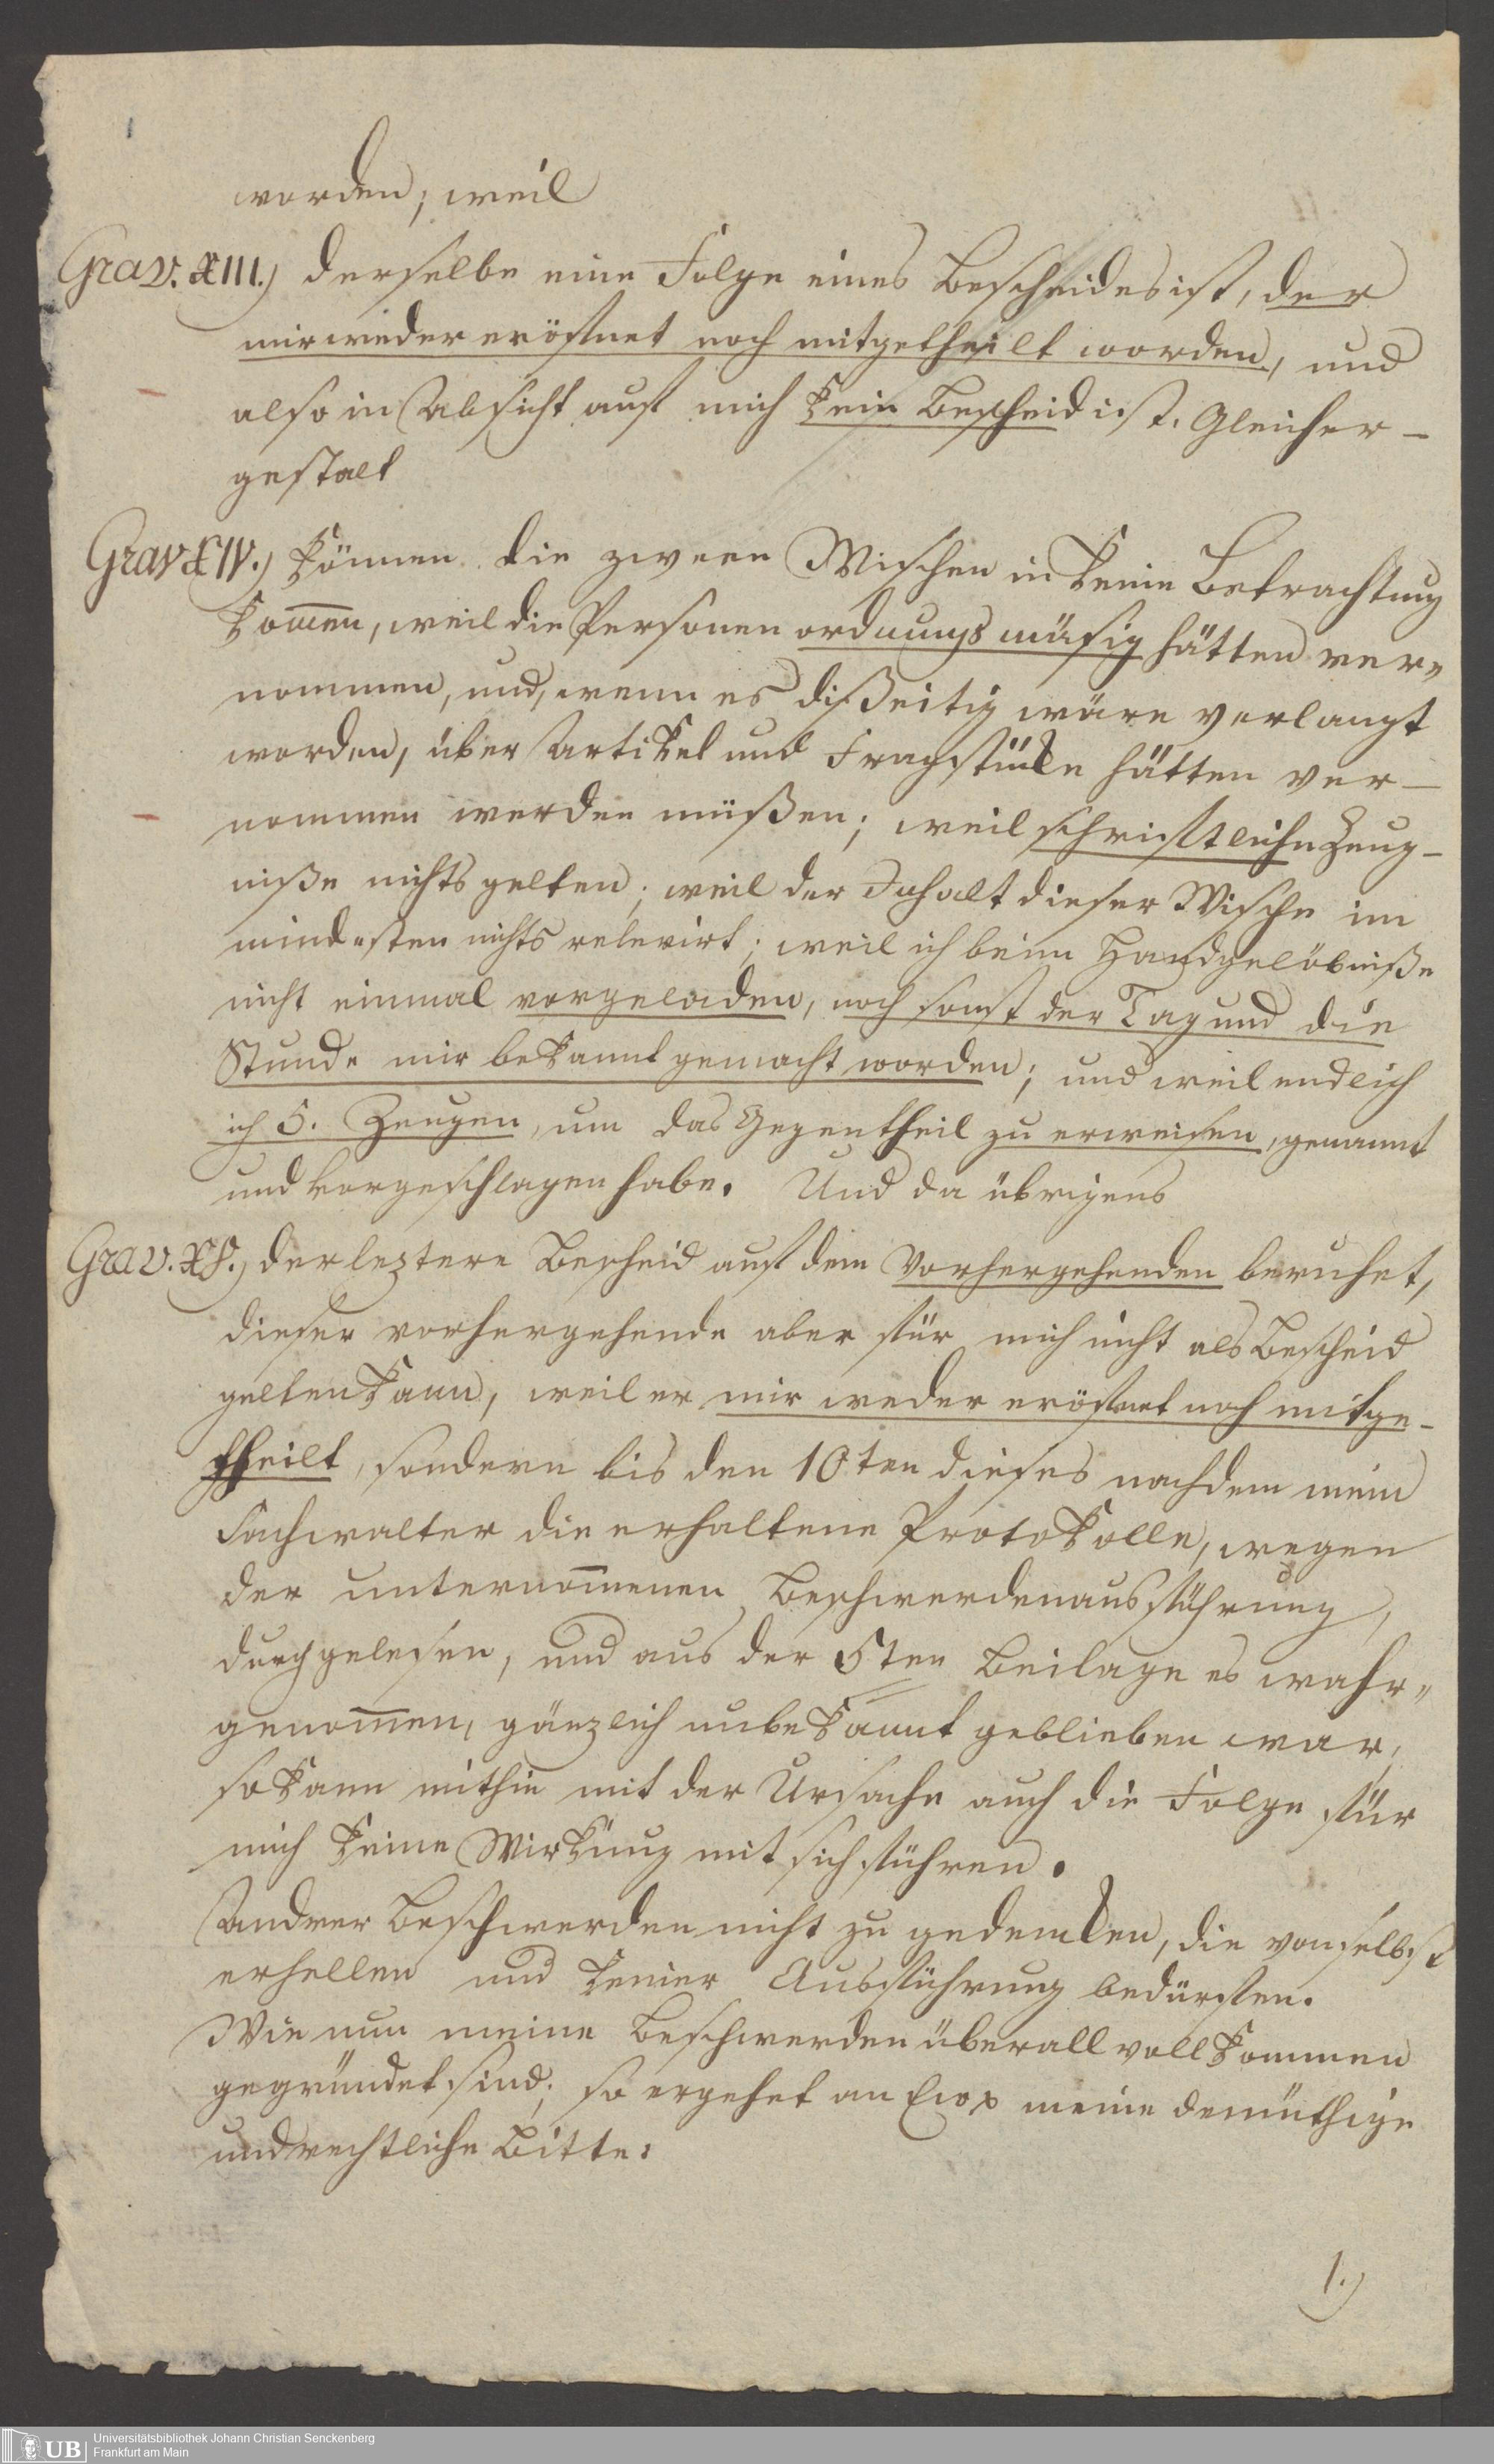 worden; weil
Grav. XIII.) derselbe eine Folge eines Bescheides ist, der
mir weder eröfnet noch mitgetheilt worden, und
also in Absicht auf mich kein Bescheid ist. Gleicher-
gestalt
Grav XIV.) können die zween Wischen in keine Betrachtung
kom̄en, weil die Personen ordnungsmäsig hätten ver„
nommen, und, wenn es dißeitig wäre verlangt
worden, über Artikel und Fragstücke hätten ver-
nommen werden müßen; weil schriftliche Zeug-
niße nichts gelten; weil der Inhalt dieser Wische im
mindesten nichts relevirt; weil ich beim Handgelöbniße
nicht einmal vorgeladen, noch sonst der Tag und die
Stunde mir bekannt gemacht worden; und weil endlich
ich 5. Zeugen, um das Gegentheil zu erweisen, genannt
und vorgeschlagen habe. Und da übrigens
Grav. XV.) der leztere Bescheid auf dem Vorhergehenden beruhet,
dieser vorhergehende aber für mich nicht als Bescheid
gelten kann, weil er mir weder eröfnet noch mitge-
theilt, sondern bis den 10ten dieses nachdem mein
Sachwalter die erhaltene Protokolle, wegen
der unternom̄enen Beschwerdenausführung,
durchgelesen, und aus der 5ten Beilage es wahr„
genom̄en, gänzlich unbekannt geblieben war,
so kann mithin mit der Ursache auch die Folge für
mich keine Wirkung mit sich führen.
Andrer Beschwerden nicht zu gedenken, die von selbst
erhellen und keiner Ausführung bedürfen.
Wie nun meine Beschwerden überall vollkommen
gegründet sind; so ergehet an Ew. meine demüthige
und rechtliche Bitte:
1.)
UB Universitätsbibliothek Johann Christian Senckenberg
Frankfurt am Main